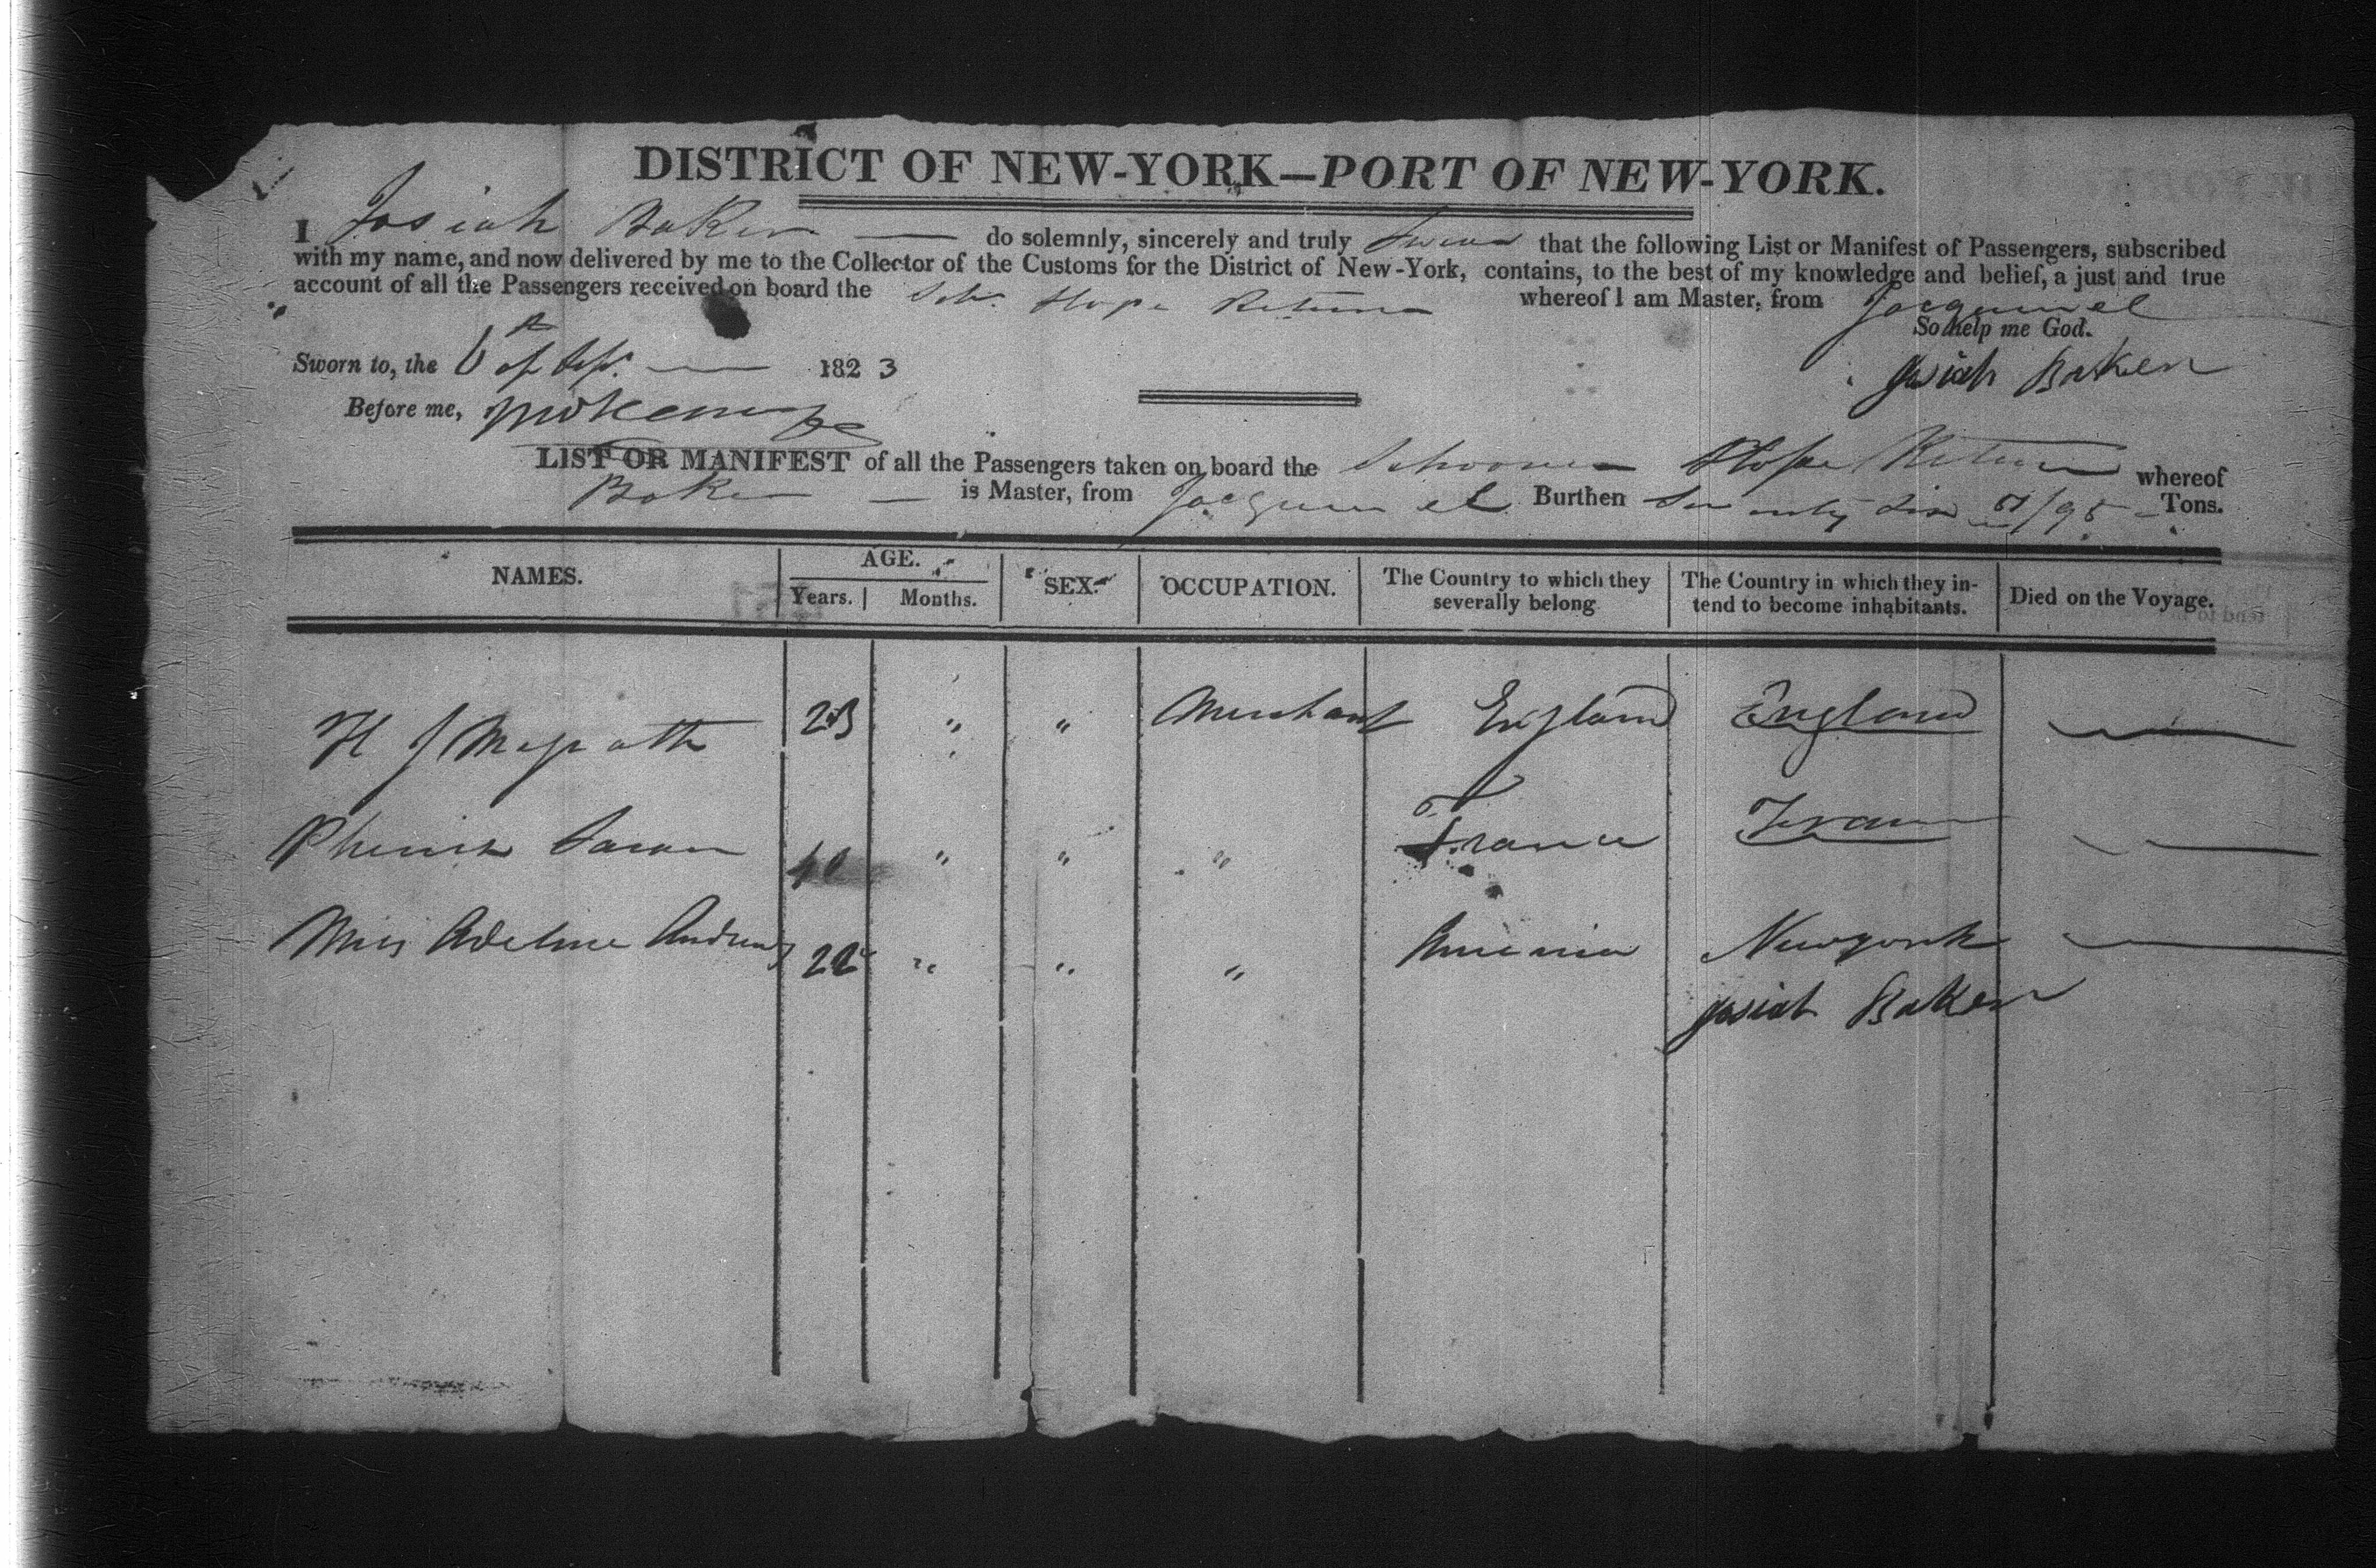 DISTRICT OF NEW-YORK—PORT OF NEW-YORK.
I Josiah Baker — do solemnly, sincerely and truly Swear that the following List or Manifest of Passengers, subscribed
with my name, and now delivered by me to the Collector of the Customs for the District of New-York, contains, to the best of my knowledge and belief, a just and true
account of all the Passengers received on board the Sch. Hope Return whereof I am Master, from Jacquemel
So help me God.
Sworn to, the 6th of Sept. — 1823
Josiah Baker
Before me,
LIST OR MANIFEST of all the Passengers taken on board the Schooner Hope Return whereof
Baker — is Master, from Jacquemel Burthen Seventy Six /95 Tons.
NAMES. AGE. SEX. OCCUPATION. The Country to which they severally belong The Country in which they intend to become inhabitants. Died on the Voyage.
Years. Months.
H J Magrath 23 " " Merchant England England —
Phenix 40 " " " France France —
Miss Adeline Andrews 22 " " " America Newyork —
Josiah Baker